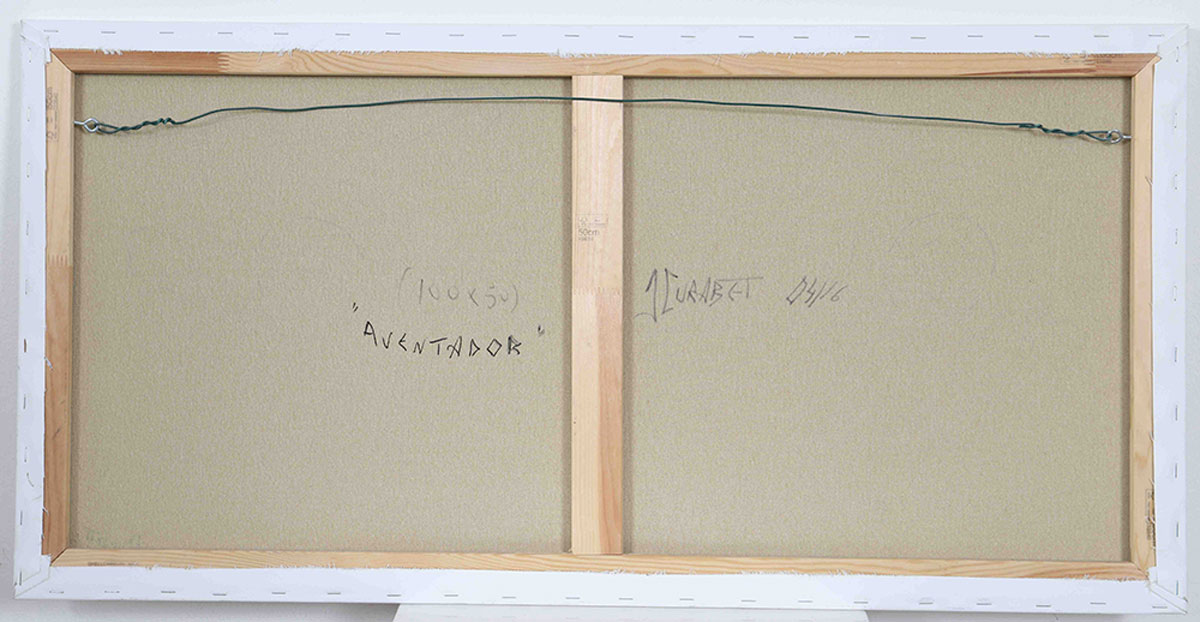 50cm
(100x50)
"AVENTADOR"
JCURABET 04/16